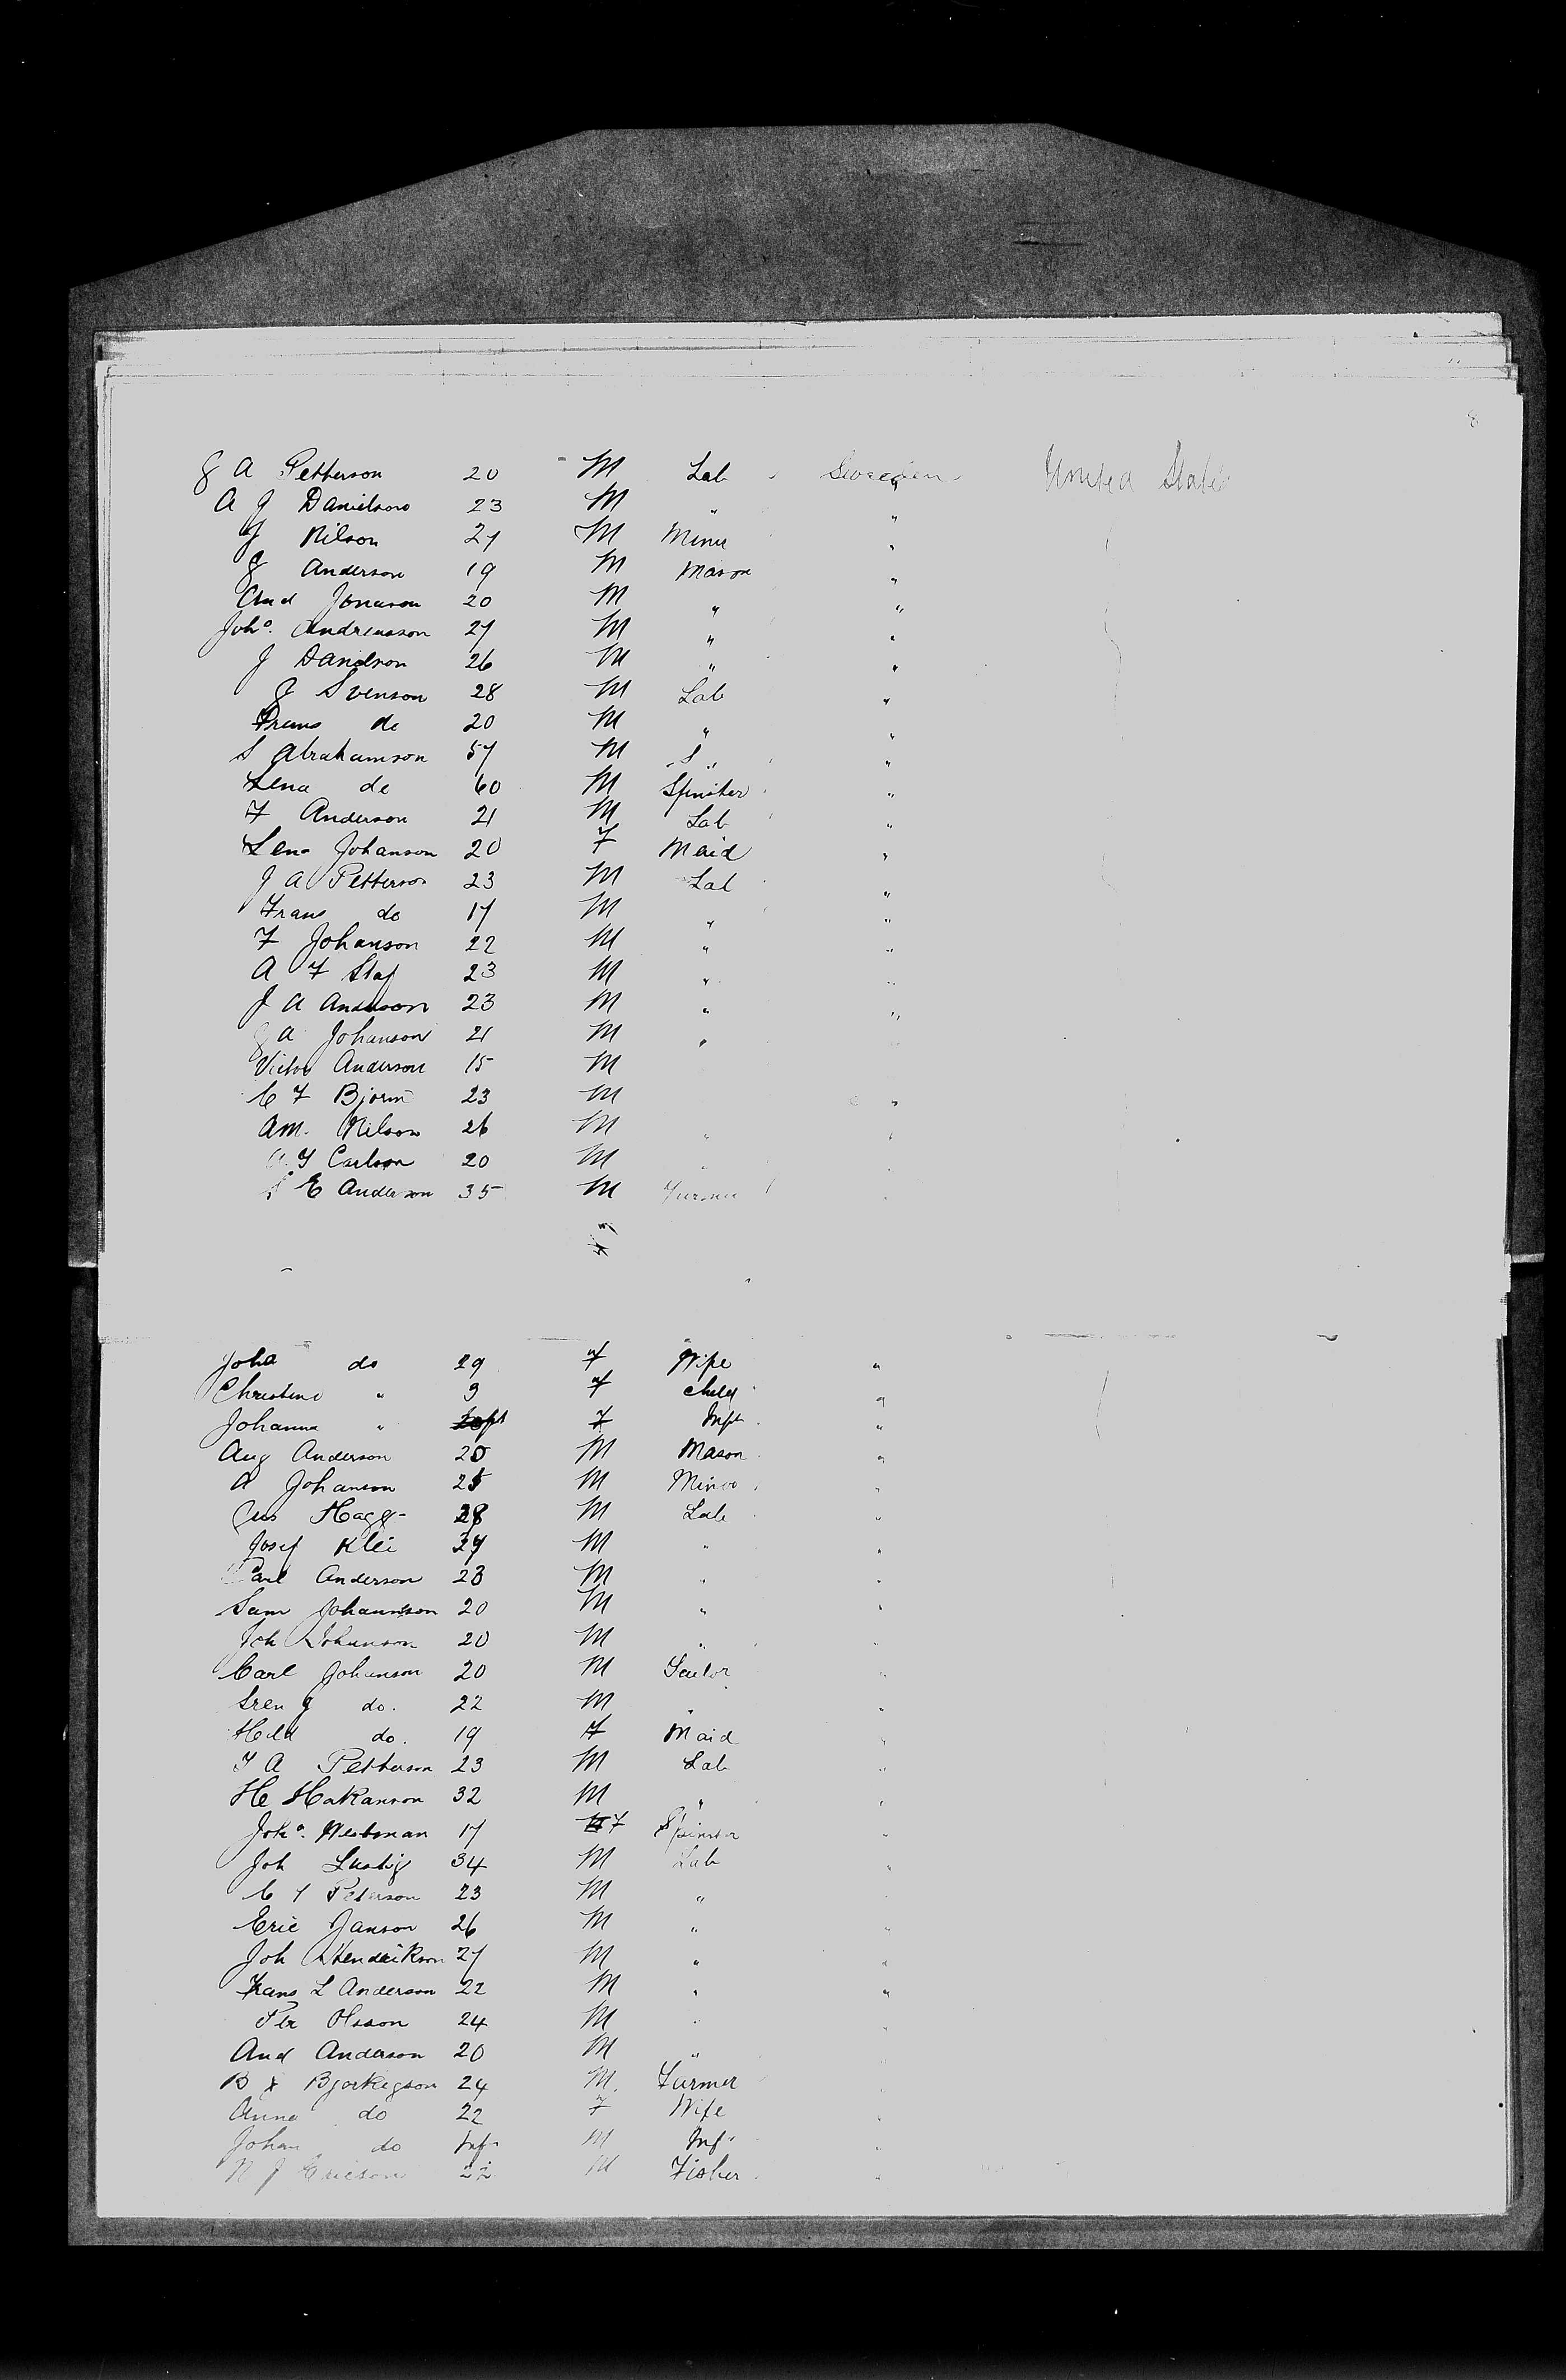 8
J A Petterson 20 M Lab Sweden United States
A J Danielson 23 M " "
J Nilson 27 M Miner "
J Anderson 19 M Mason "
And Jonason 20 M " "
Joh^a. Andreasson 27 M " "
J Danielson 26 M " "
J Svenson 28 M Lab "
Frans do 20 M " "
S Abrahamson 57 M S " "
Lena do 60 M Spinster "
F Anderson 21 M Lab "
Lena Johanson 20 F Maid "
J A Petterson 23 M Lab "
Frans do 17 M " "
F Johanson 22 M " "
A F Staf 23 M " "
J A Anderson 23 M " "
J A Johanson 21 M "
Victor Anderson 15 M
C F Bjorn 23 M "
AM. Nilson 26 M " "
A J Carlson 20 M " "
S E Anderson 35 M Farmer "
Joha do 29 F Wife "
Christine " 3 F Child "
Johanna " F Inft "
Aug Anderson 25 M Mason "
A Johanson 25 M Miner "
Gus Hagg 28 M Lab "
Josef Klei 27 M " "
Carl Anderson 23 M " "
Sam Johannson 20 M " "
Joh Johanson 20 M " "
Carl Johanson 20 M Tailor "
Sven J do. 22 M " "
Hild do. 19 F Maid "
J A Petterson 23 M Lab "
He Hakanson 32 M " "
Joh^a. Westman 17 F Spinster "
Joh Lustig 34 M Lab "
C J Peterson 23 M " "
Eric Janson 26 M " "
Joh Hendrikson 27 M " "
Frans L Anderson 22 M " "
Per Olsson 24 M " "
And Anderson 20 M "
B Bjorkegson 24 M Farmer
Anna do 22 F Wife "
Johan do Inf M Inf "
N J Ericson 22 M Fisher "